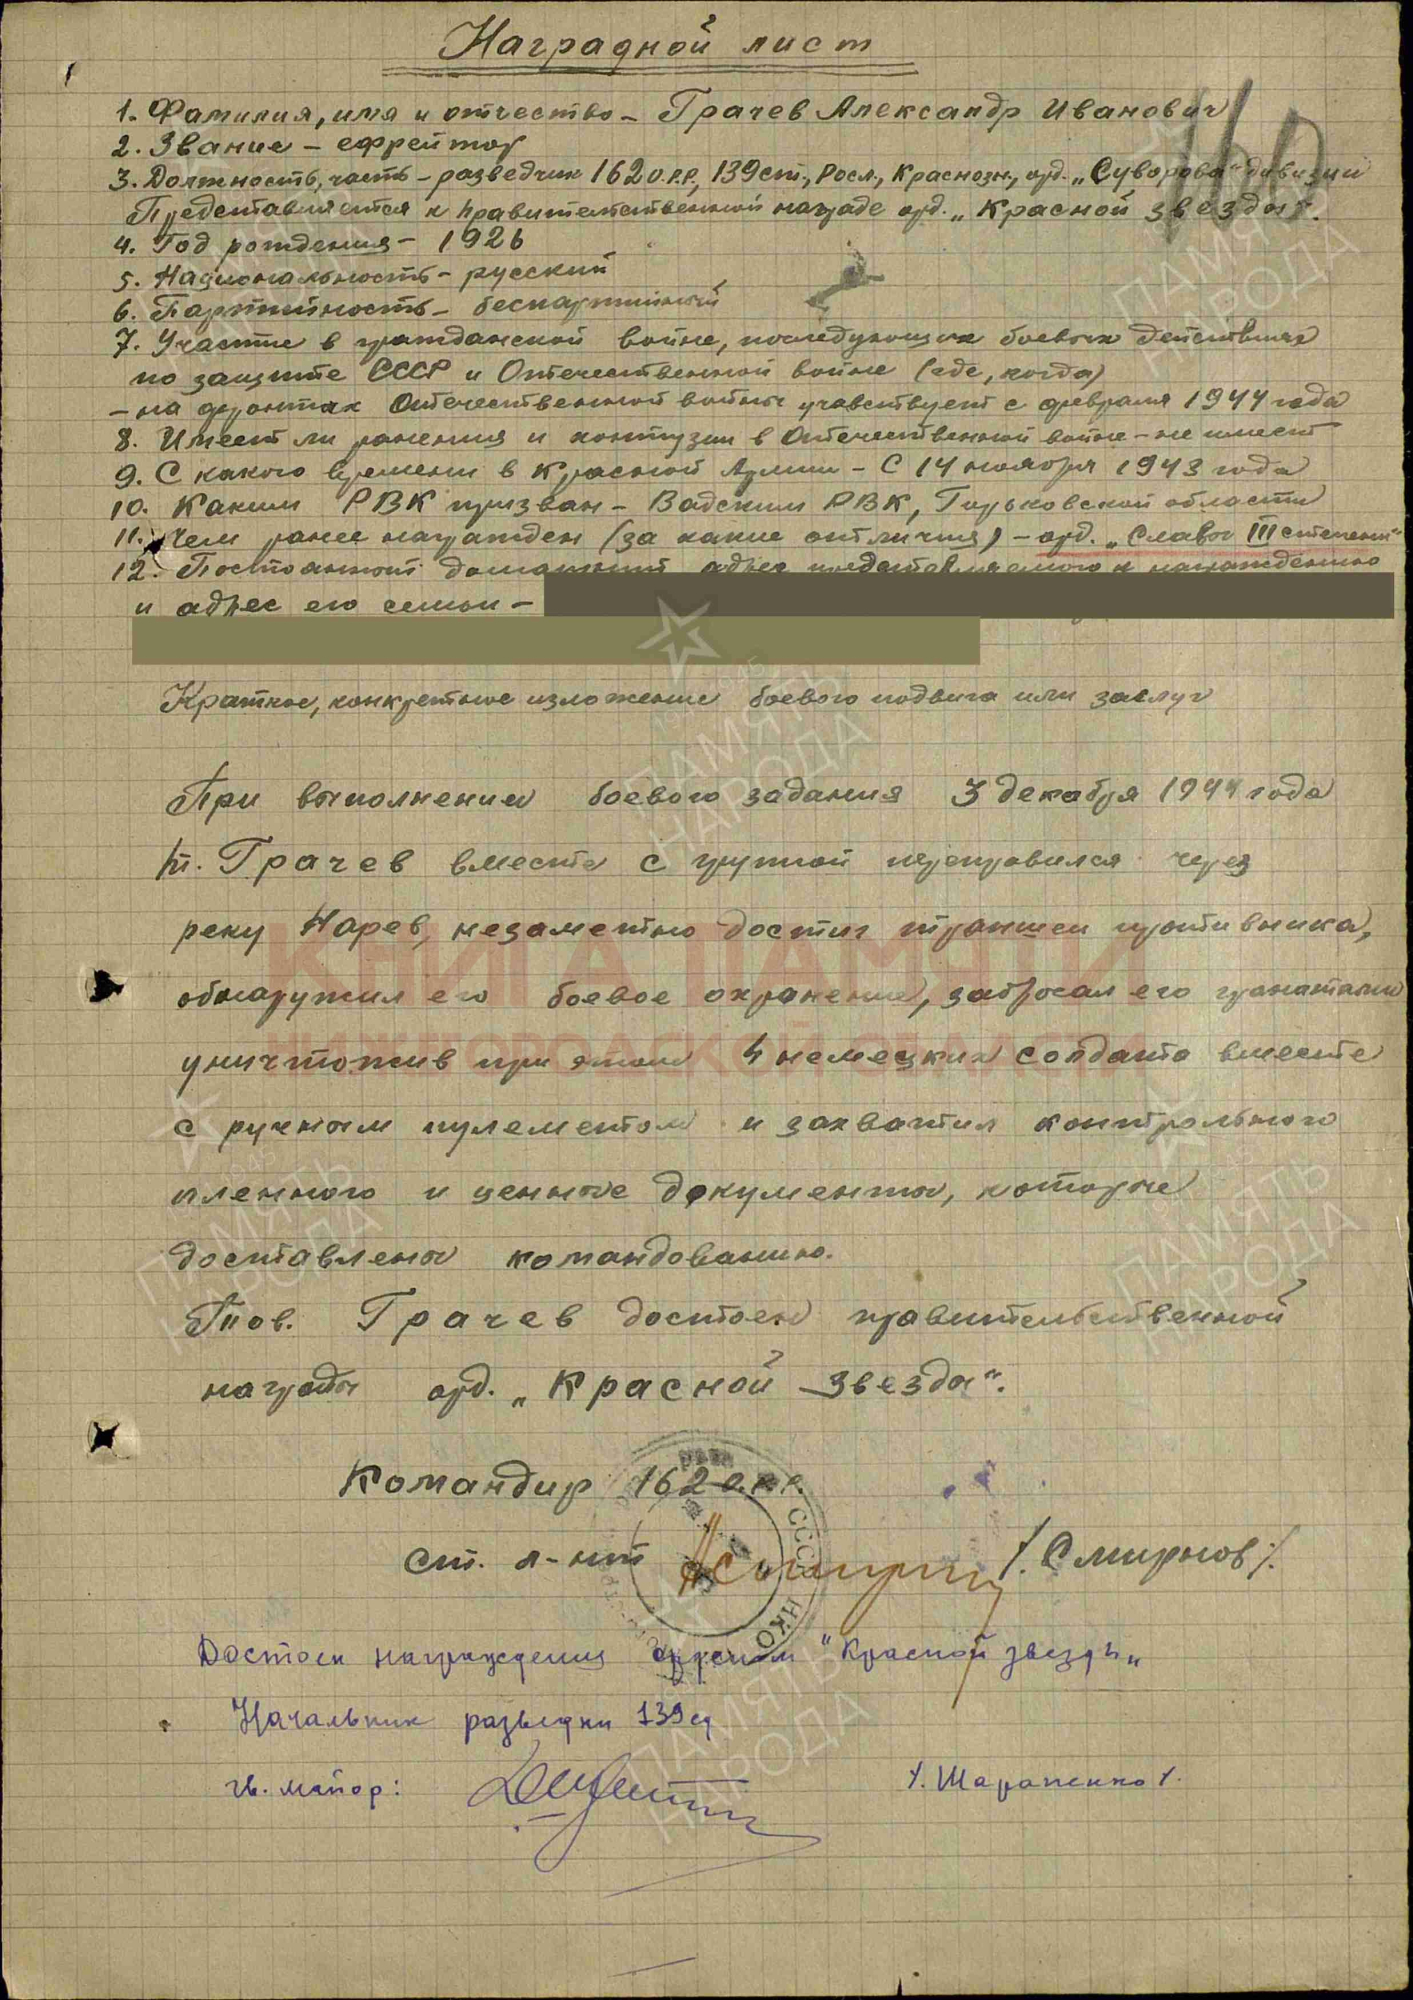 Наградной лист
160
1. Фамилия, имя и отчество – Грачев Александр Иванович
2. Звание – ефрейтор
3. Должность, часть – разведчик 162 о.р.р., 139 ст., Росл., Краснозн., орд. „Суворова" дивизии
Представляется к правительственной награде орд. „Красной звезды".
4. Год рождения – 1926
5. Национальность – русский
6. Партийность – беспартийный
7. Участие в гражданской войне, последующих боевых действиях
по защите СССР и Отечественной войне (где, когда)
– на фронтах Отечественной войны учавствует с февраля 1944 года
8. Имеет ли ранения и контузии в Отечественной войне – не имеет
9. С какого времени в Красной Армии – С 14 ноября 1943 года
10. Каким РВК призван – Вадским РВК, Горьковской области
11. Чем ранее награжден (за какие отличия) – орд. „Славы III степени"
12. Постоянный домашний адрес представляемого к награждению
и адрес его семьи –
Краткое, конкретное изложение боевого подвига или заслуг
При выполнении боевого задания 3 декабря 1944 года
т. Грачев вместе с группой переправился через
реку Нарев, незаметно достиг траншеи противника,
обнаружил его боевое охранение, забросал его гранатами
уничтожив при этом 4 немецких солдата вместе
с ручным пулеметом и захватил контрольного
пленного и ценные документы, которые
доставлены командованию.
Тов. Грачев достоен правительственной
награды орд. „Красной Звезды".
Командир 162 о.р.р.
ст. л-нт /. Смирнов /.
СССР
НКО
Достоин награждения орденом "Красной звезды„
Начальник разведки 139 сд
гв. майор: /. Шараненко /.
КНИГА ПАМЯТИ
НИЖЕГОРОДСКОЙ ОБЛАСТИ
ПАМЯТЬ
НАРОДА
ПАМЯТЬ
НАРОДА
ПАМЯТЬ
НАРОДА
ПАМЯТЬ
НАРОДА
ПАМЯТЬ
НАРОДА